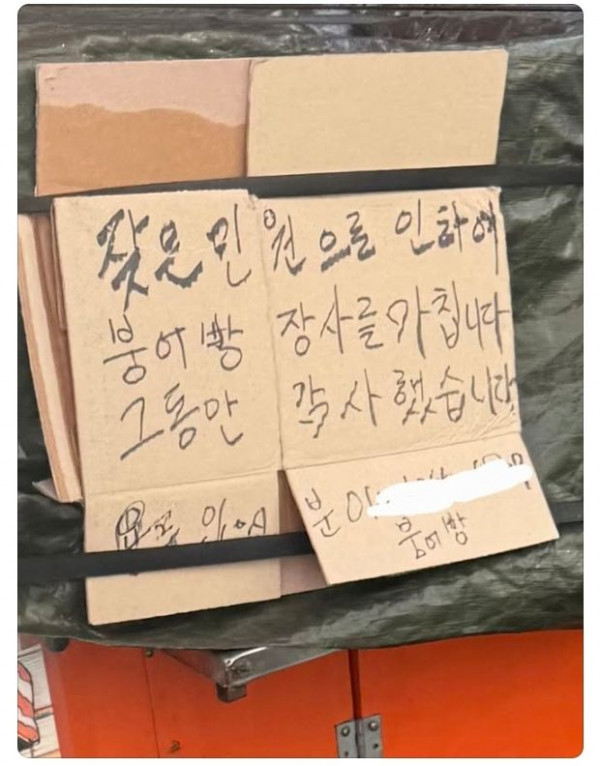 잦은 민원으로 인하여
붕어빵 장사를 마칩니다
그동안 감사했습니다
붕어빵